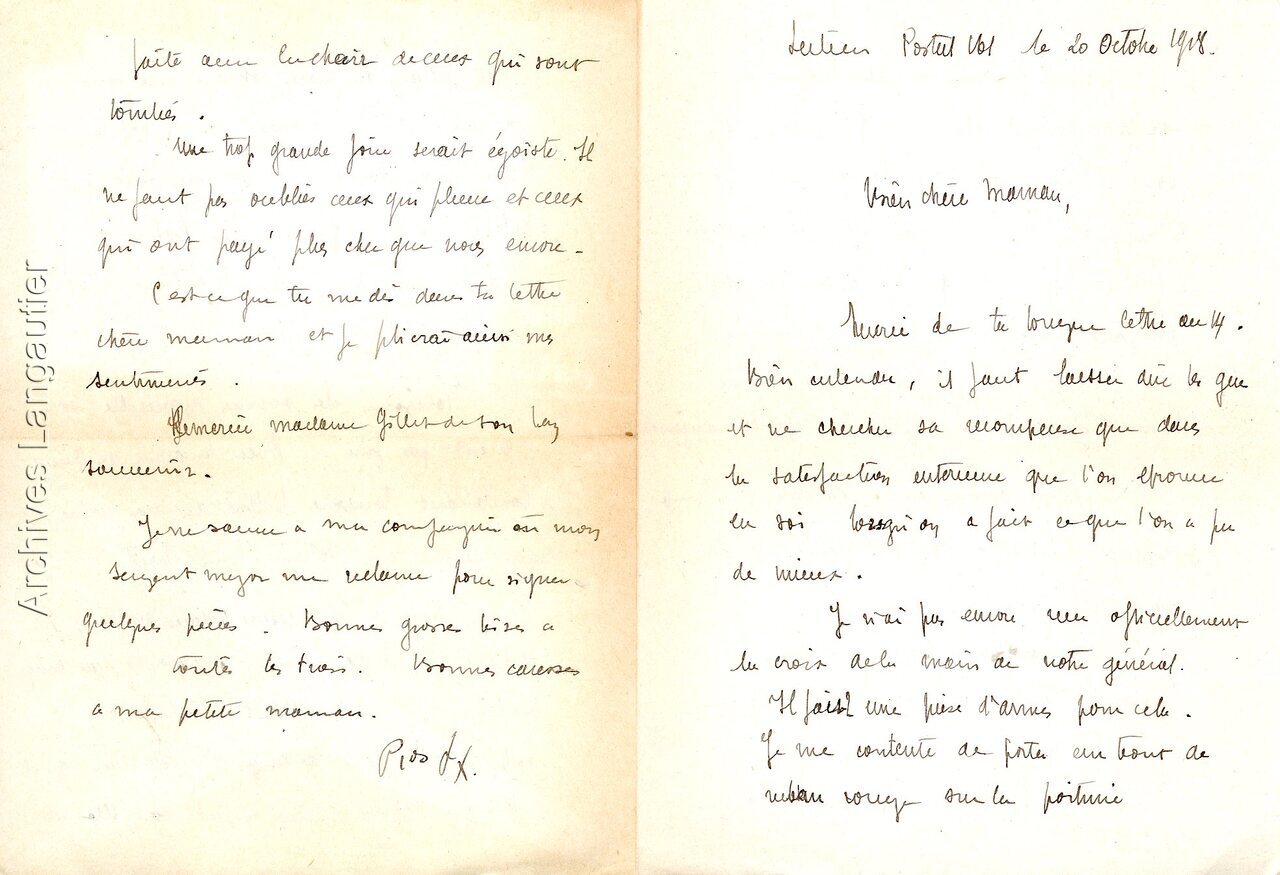 Secteur Postal 161 le 20 Octobre 1918.
Bien chère Maman,
Merci de ta longue lettre du 14.
Bien entendu, il faut laisser dire les gens
et ne chercher sa recompense que dans
la satisfaction interieure que l'on eprouve
en soi lorsqu'on a fait ce que l'on a pu
de mieux.
Je n'ai pas encore reçu officiellement
la croix de la main de notre général.
Il faut une prise d'armes pour cela.
Je me contente de porter un bout de
ruban rouge sur la poitrine
faite avec la chair de ceux qui sont
tombés.
Une trop grande joie serait égoiste. Il
ne faut pas oublier ceux qui pleure et ceux
qui ont payé plus cher que nous encore -
C'est ce que tu me dis dans ta lettre
chère maman et je
sentiments.
Remercie madame Gillet de son bon
souvenir.
Je me sauve a ma compagnie où mon
sergent major me reclame pour signer
quelques pièces. Bonnes grosses bises a
toutes les trois. Bonnes caresses
a ma petite maman.
Archives Langautier